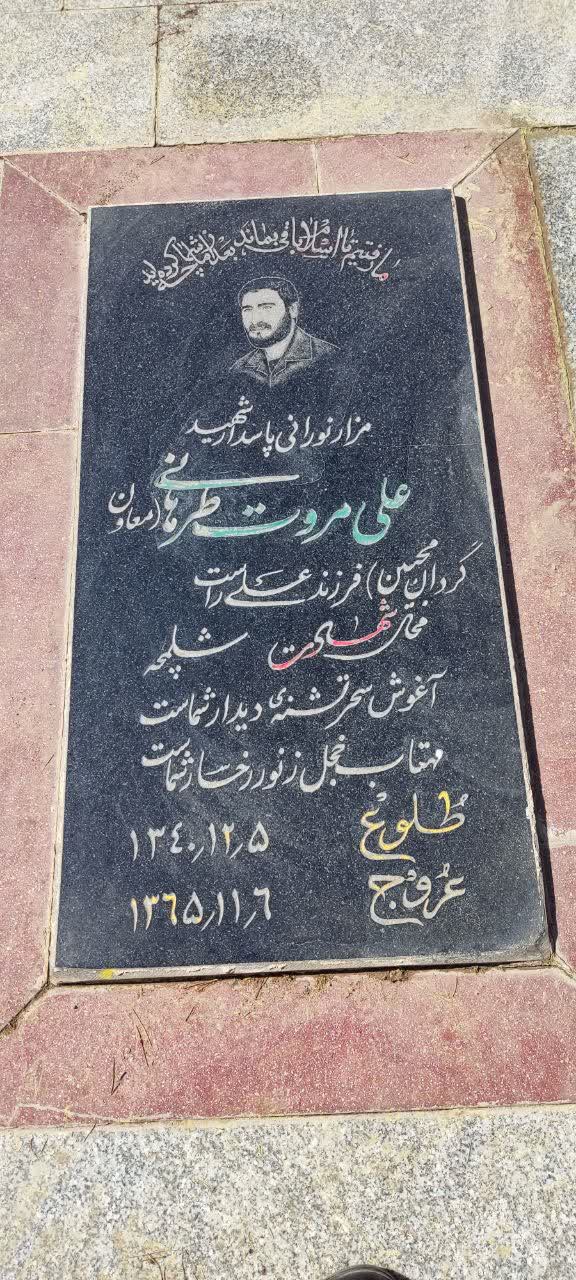 ما رفتیم تا اسلام باقی بماند
مزار نورانی پاسدار شهید
علی مروت طرهانی (معاون
گردان محبین) فرزند علی راست
محل شهادت شلمچه
آغوش سحر تشنه‌ی دیدار شماست
مهتاب خجل ز نور رخسار شماست
طلوع ۱۳۴۰/۱۲/۵
عروج ۱۳۶۵/۱۱/۶